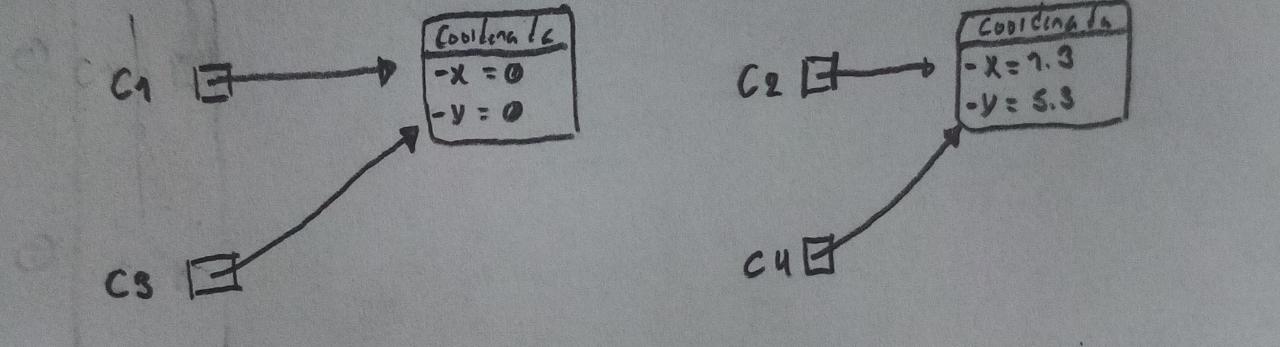 C1
Coordenada
-x = 0
-y = 0
C2
Coordenada
-x = 1.3
-y = 5.3
C3
C4